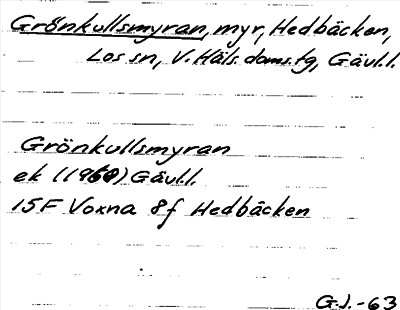 Grönkullsmyran, myr, Hedbäcken,
Los sn, V. Häls. doms. tg, Gävl.l.
Grönkullsmyran
ek (1960) Gävl.l.
15F Voxna 8f Hedbäcken
G.J. -63